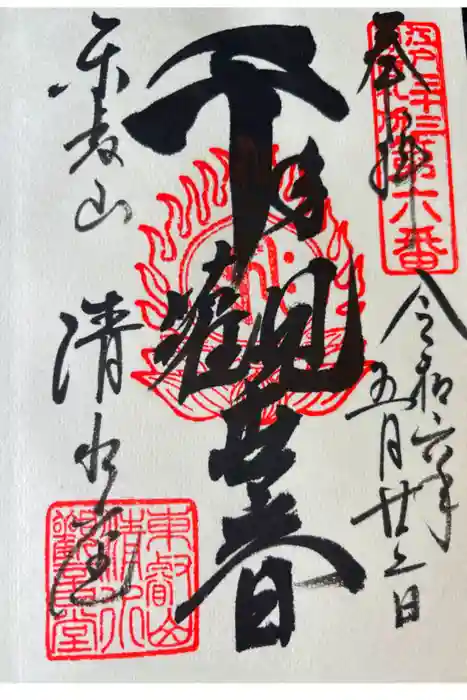 奉拝
江戸三十三観音札所第六番
令和六年
五月廿二日
千手観音
東叡山
清水堂
東叡山
清水
観音堂